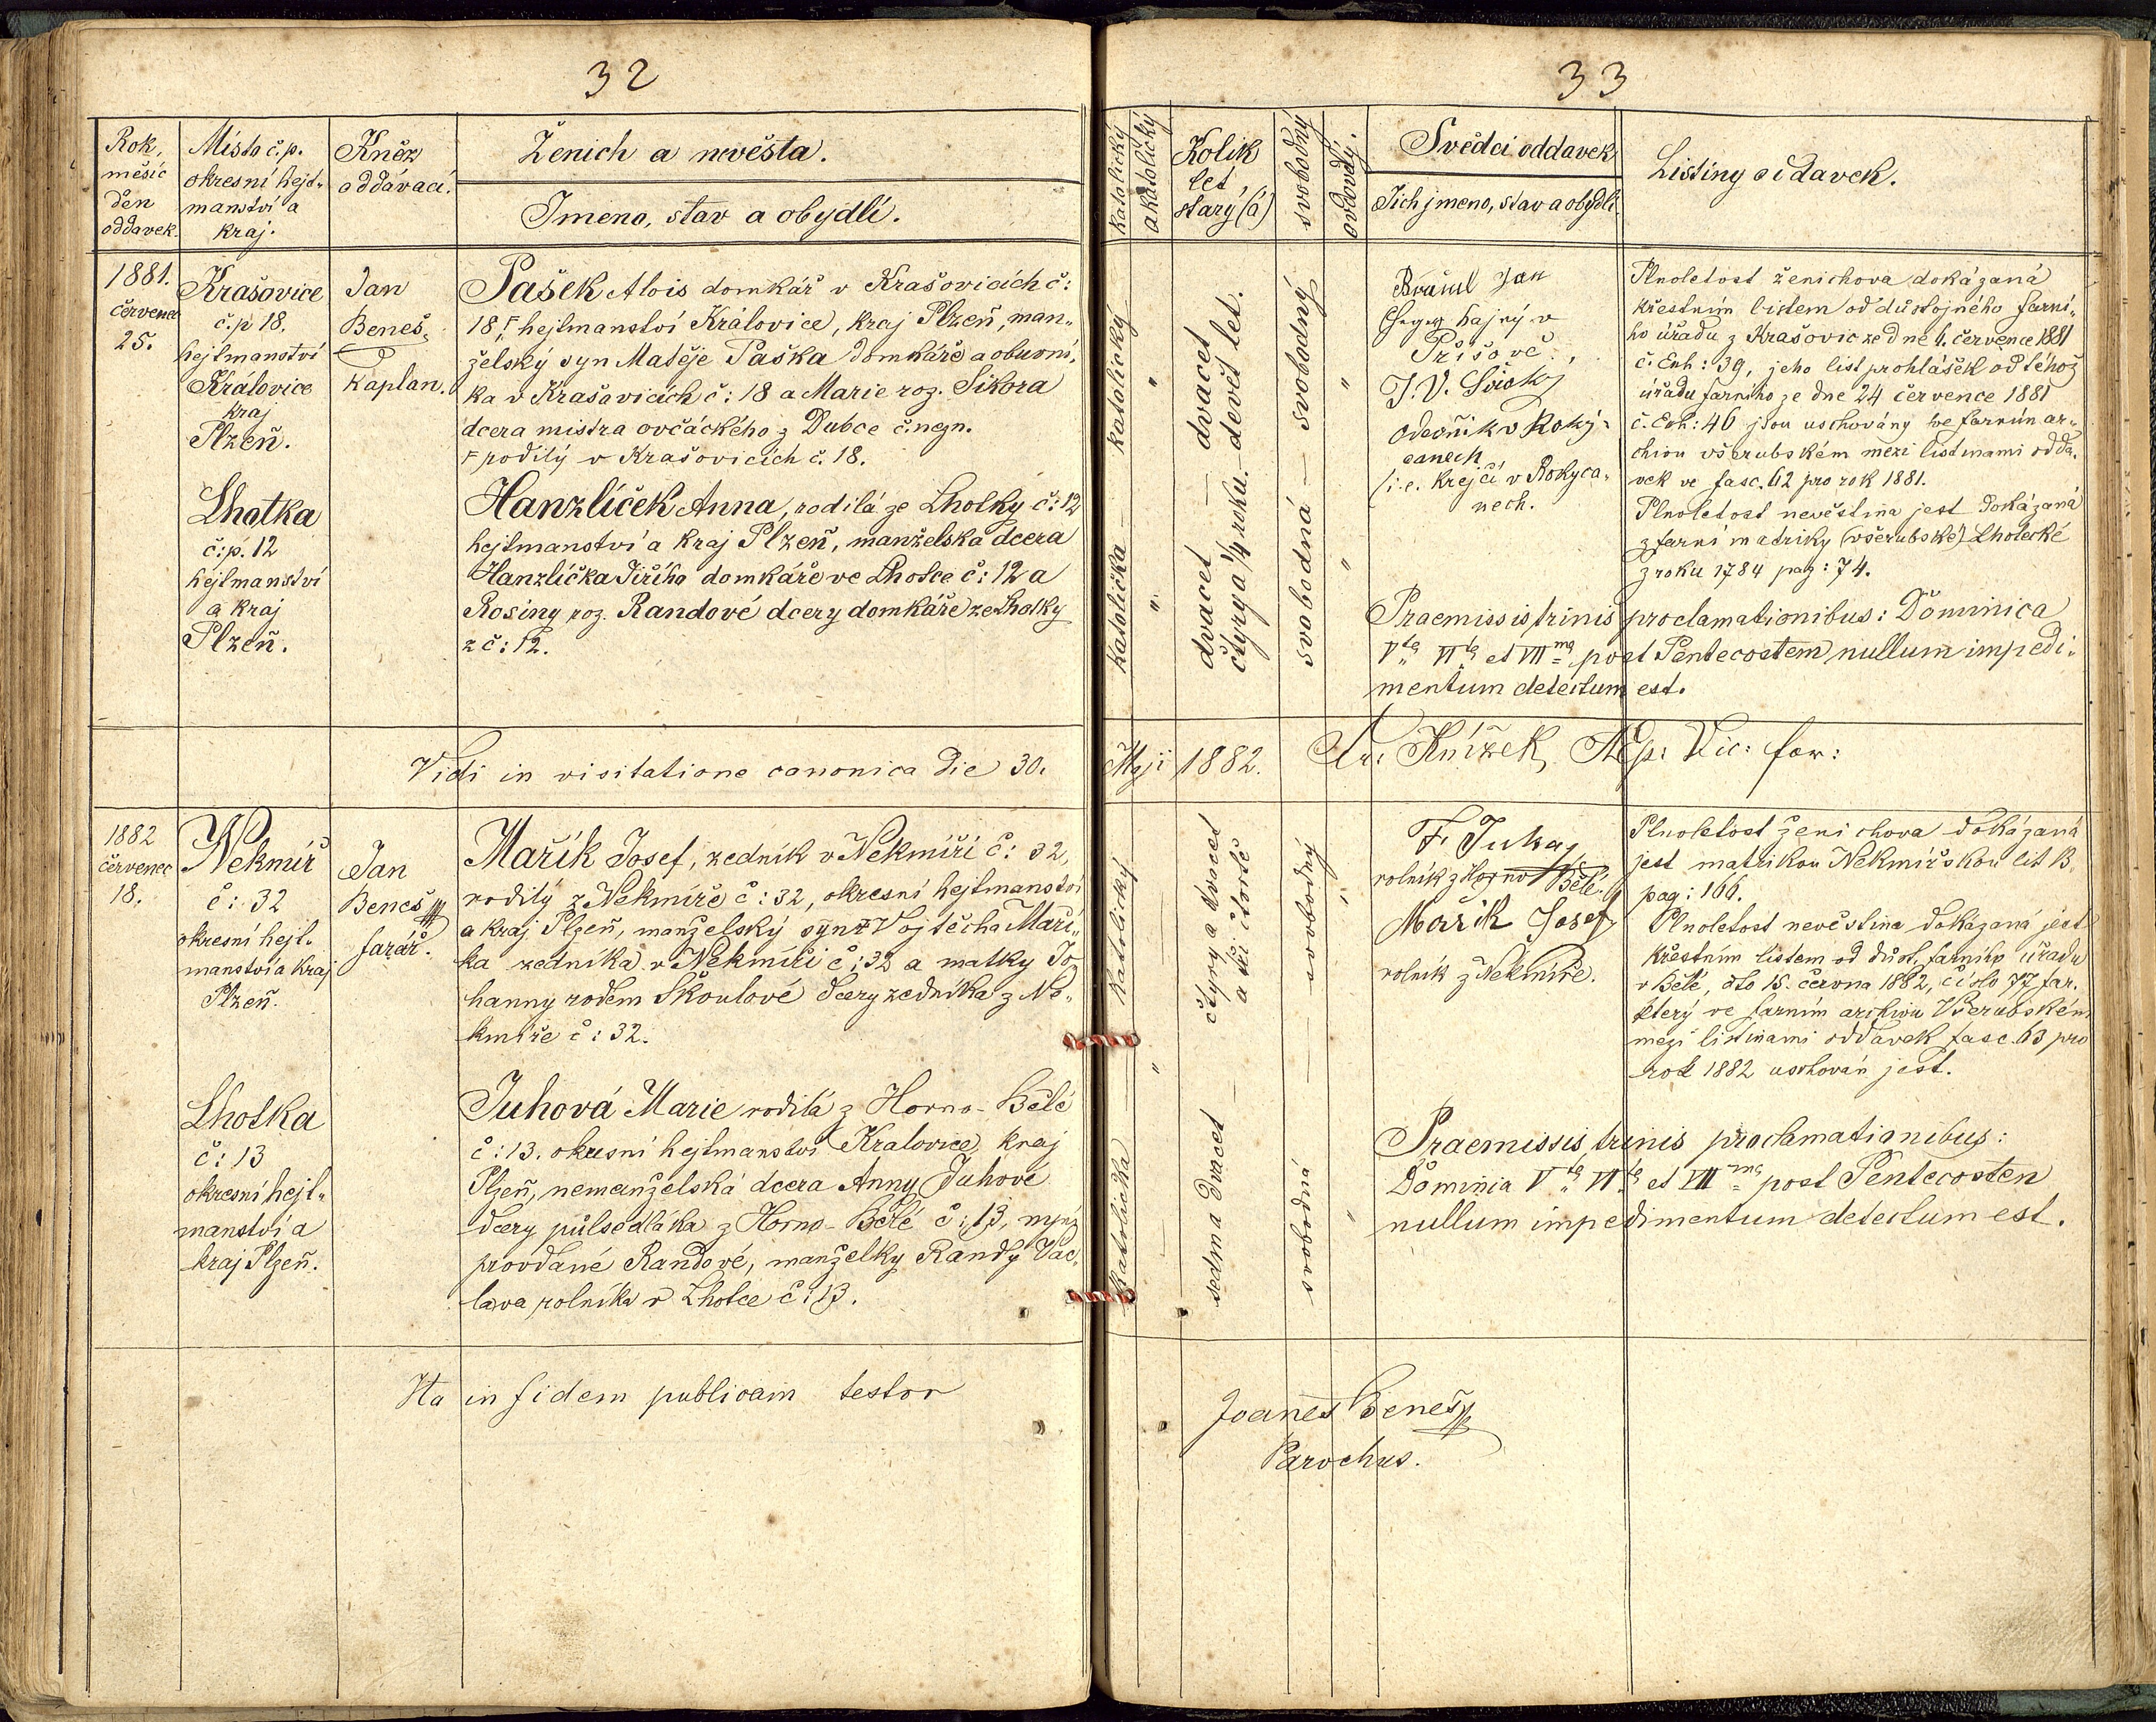 32
Rok,
měsíc
den
oddavek.
Místo č.p.
okresní hejt„
manství a
kraj.
Kněz
oddávací.
Ženich a nevěsta.
Jmeno, stav a obydlí.
1881.
červenec
25.
Krašovice
č.p 18.
hejtmanství
Královice
kraj
Plzeň.
Jan
Beneš
kaplan.
Pašek Alois domkář v Krašovicích č:
18 F hejtmanství Královice, kraj Plzeň, man„
želský syn Matěje Paška domkáře a obuvní„
ka v Krašovicích č: 18 a Marie roz. Sikora
dcera mistra ovčáckého z Dubce č. nezn.
F rodilý v Krašovicích č. 18.
Lhotka
č:p. 12
hejtmanství
a kraj
Plzeň.
Hanzlíček Anna, rodilá ze Lhotky č: 12
hejtmanství a kraj Plzeň, manželská dcera
Hanzlíčka Jiřího domkáře ve Lhotce č: 12 a
Rosiny roz. Randové dcery domkáře ze Lhotky
z č: 12.
Vidi in visitatione canonica die 30.
1882
červenec
18.
Nekmíř
č: 32
okresní hejt„
manství a kraj
Plzeň.
Jan
Beneš
farář.
Mařík Josef, zedník v Nekmíři č: 32,
rodilý z Nekmíře č: 32, okresní hejtmanství
a kraj Plzeň, manželský syn Vojtěcha Maří„
ka zedníka v Nekmíři č: 32 a matky Jo
hanny rodem Škoulové dcery zedníka z Ne„
kmíře č: 32.
Lhotka
č: 13
okresní hejt„
manství a
kraj Plzeň.
Juhová Marie rodilá z Horno-Bělé
č: 13. okresní hejtmanství Kralovice, kraj
Plzeň, nemanželská dcera Anny Juhové
dcery půlsedláka z Horno-Bělé č: 13, nyní
provdané Randové, manželky Randy Vác„
lava rolníka v Lhotce č: 13.
Ita in fidem publicam testor
33
katolický
akatolický
Kolik
let
starý (á)
svobodný
ovdovělý.
Svědci oddavek
Jich jmeno, stav a obydlí.
Listiny oddavek.
katolický
"
dvacet
devět let.
svobodný
"
Jan
hajný v
Příšově.,
J. V.
oděvník v Roky„
canech
/i.e. krejčí v Rokyca„
nech.
Plnoletost ženichova dokázaná
křestním listem od důstojného farní„
ho úřadu z Krašovic ze dne 6. července 1881
č. Exh: 39, jeho list prohlášek od téhož
úřadu farního ze dne 24 července 1881
č. Exh: 46 jsou uschovány ve farním ar„
chivu všerubském mezi listinami odda„
vek ve fasc. 62 pro rok 1881.
Plnoletost nevěstina jest dokázaná
z farní matriky (všerubské) Lhotecké
z roku 1784 pag: 74.
katolička
"
dvacet
čtyry a 1/4 roku.
svobodná
"
Praemissis trinis proclamationibus: Dominica
Vta VIta et VIIma post Pentecostem nullum impedi„
mentum detectum est.
Maji 1882. Fr: Knížek, Ep: Vic: for:
katolický
čtyry a dvacet
a tři čtvrtě
svobodný
"
F. Juha,
rolník z Horno Bělé.
Mařík Josef
rolník z Nekmíře.
Plnoletost ženichova dokázaná
jest matrikou Nekmířskou lit B.
pag: 166.
Plnoletost nevěstina dokázaná jest
křestním listem od důst. farního úřadu
v Bělé, dto 15. června 1882, číslo 77 far.
který ve farním archivu Všerubském
mezi listinami oddavek fasc. 63 pro
rok 1882 uschován jest.
"
katolička
sedma dvacet
svobodná
"
Praemissis trinis proclamationibus:
Dominia Vta VIta et VIIma post Pentecosten
nullum impedimentum detectum est.
Joanes Beneš
Parochus.